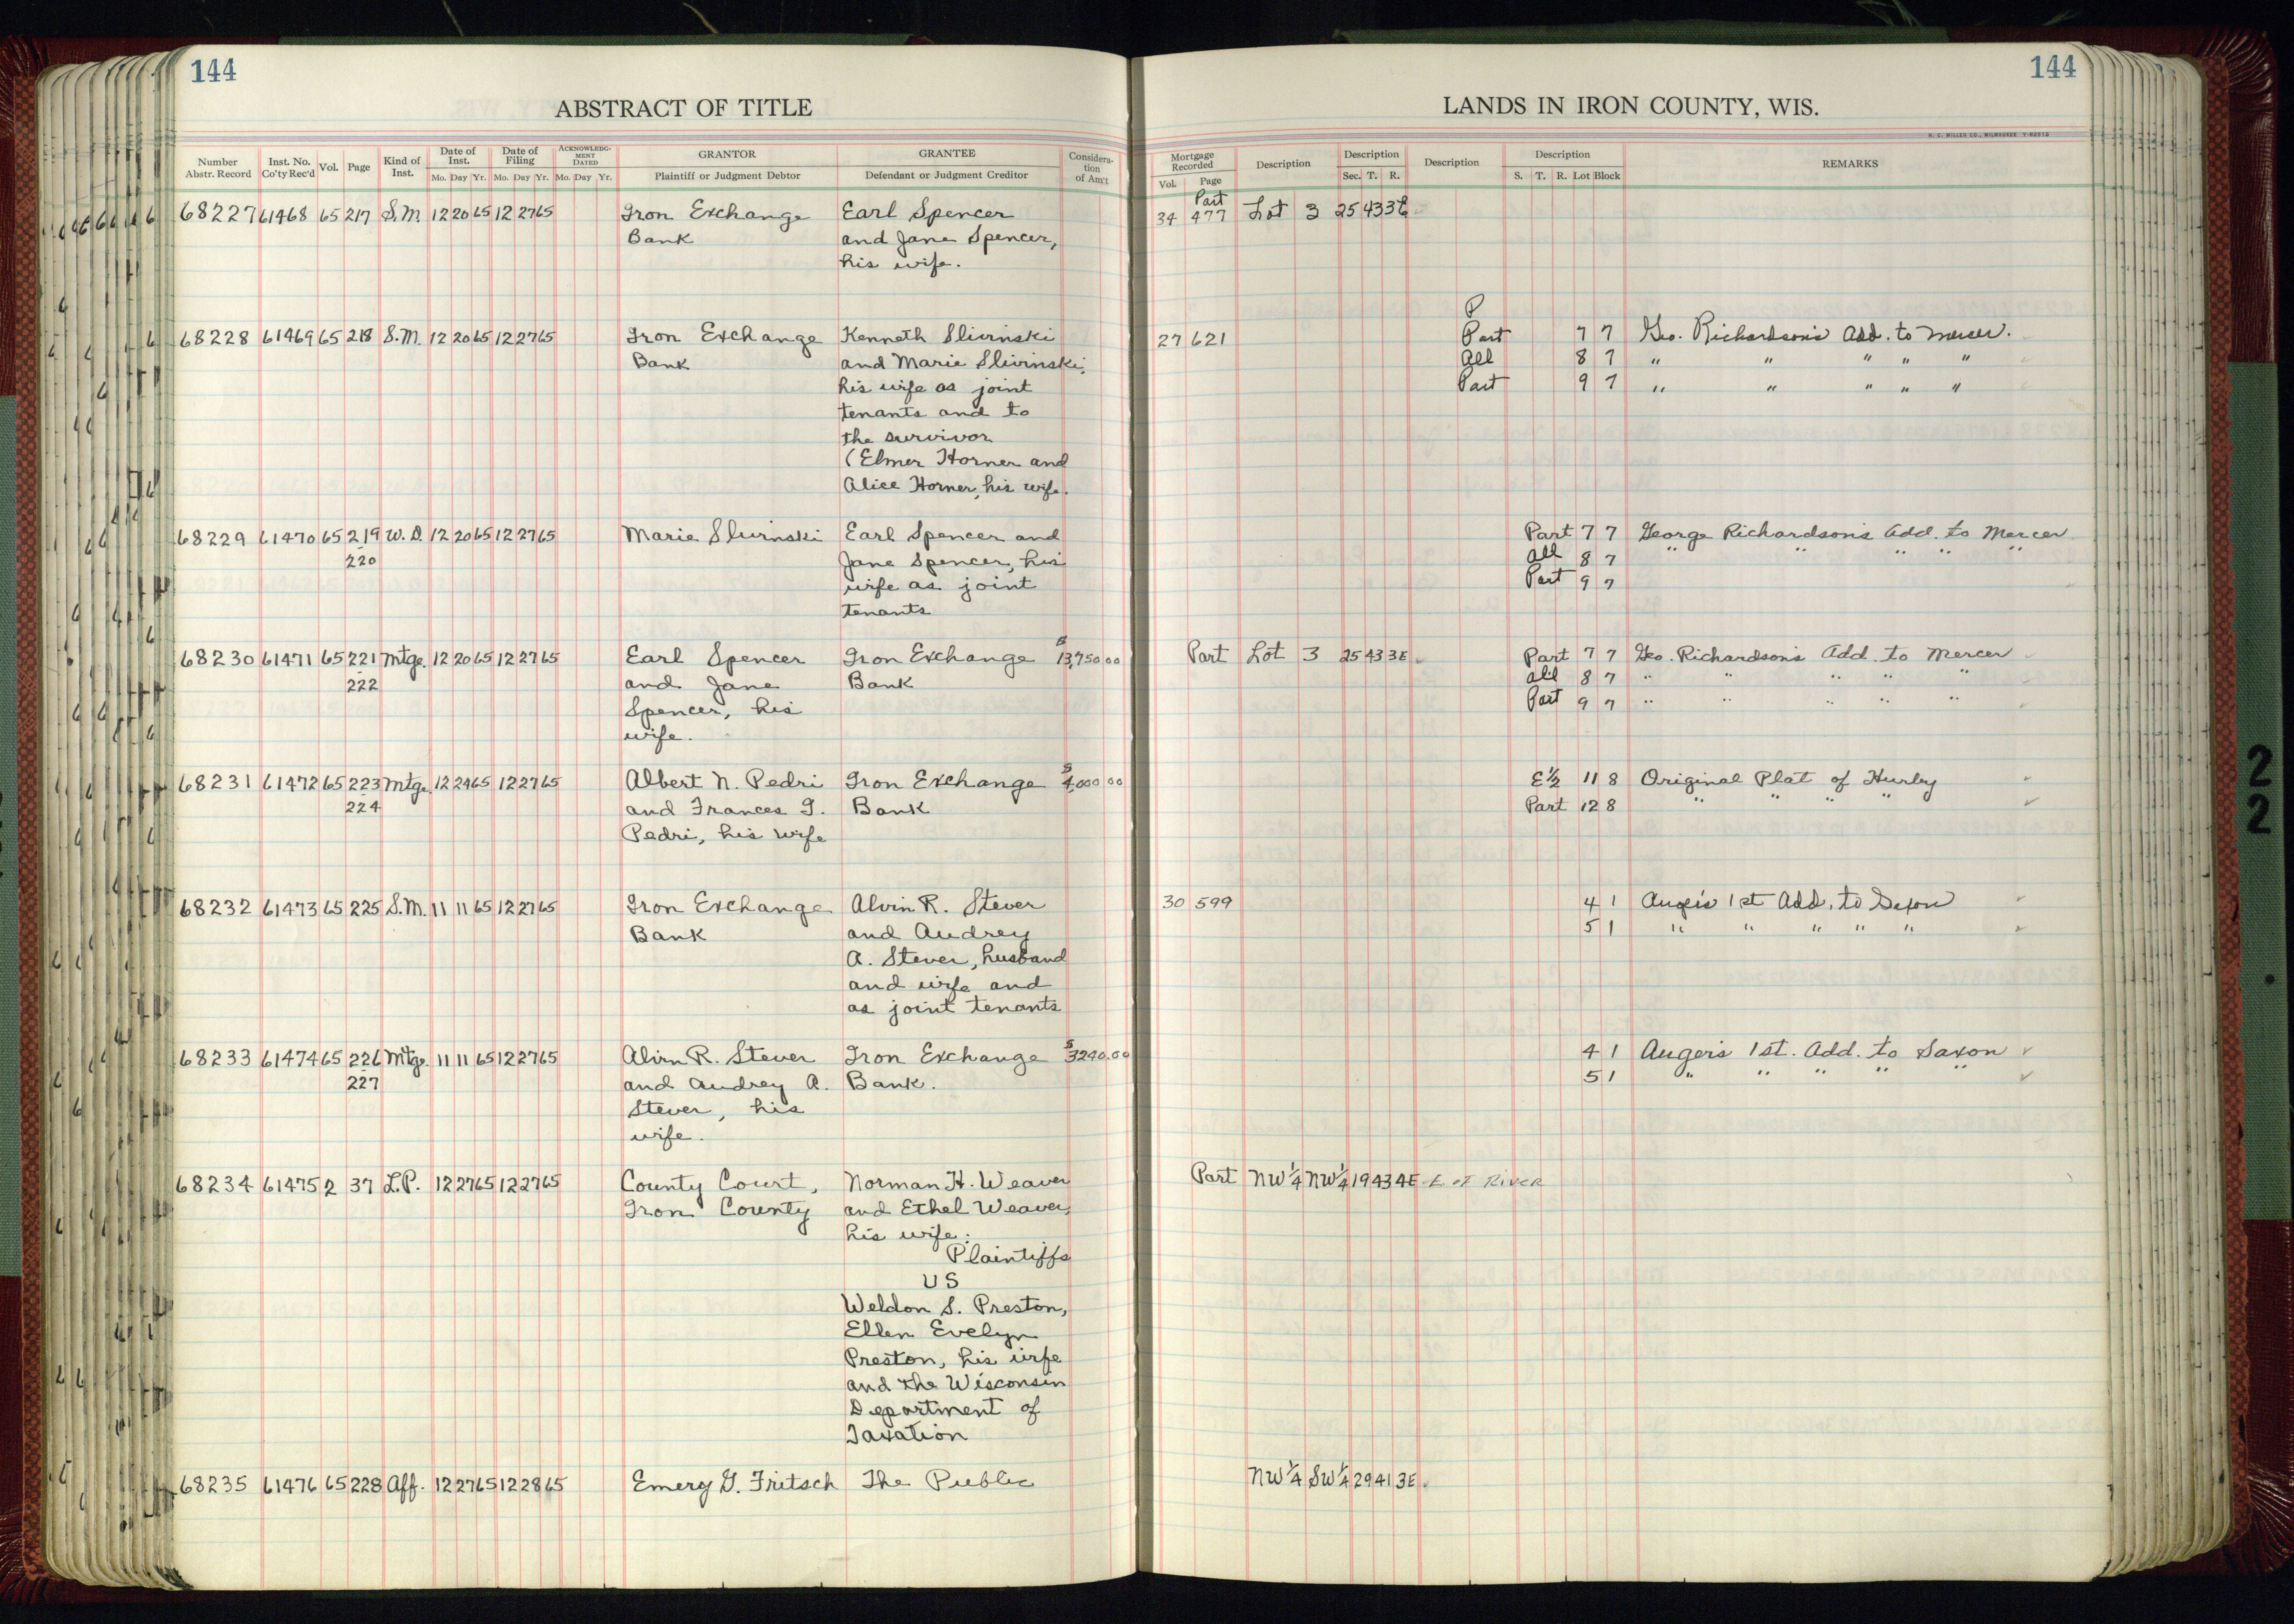 144
144
ABSTRACT OF TITLE
LANDS IN IRON COUNTY, WIS.
H. C. MILLER CO., MILWAUKEE
Number Abstr. Record
Inst. No. Co'ty Rec'd
Vol.
Page
Kind of Inst.
Date of Inst.
Mo. Day Yr.
Date of Filing
Mo. Day Yr.
ACKNOWLEDGMENT DATED
Mo. Day Yr.
GRANTOR
Plaintiff or Judgment Debtor
GRANTEE
Defendant or Judgment Creditor
Consideration of Am't
Mortgage Recorded
Vol. Page
Description
Description
Sec. T. R.
Description
Description
S. T. R. Lot Block
REMARKS
68227 61468 65 217 S.M. 12 20 65 12 27 65 Iron Exchange Earl Spencer 34 477 Part Lot 3 25 43 3E
Bank and Jane Spencer,
his wife.
P
68228 61469 65 218 S.M. 12 20 65 12 27 65 Iron Exchange Kenneth Slivinski 27 621 Part 7 7 Geo. Richardson's Add. to Mercer.
Bank and Marie Slivinski, All 8 7 " " " " "
his wife as joint Part 9 7 " " " " "
tenants and to
the survivor
(Elmer Horner and
Alice Horner, his wife.
68229 61470 65 219 W.D. 12 20 65 12 27 65 Marie Slivinski Earl Spencer and Part 7 7 George Richardson's Add. to Mercer
220 Jane Spencer, his All 8 7 " " " " "
wife as joint Part 9 7
tenants
68230 61471 65 221 Mtge. 12 20 65 12 27 65 Earl Spencer Iron Exchange $13,750.00 Part Lot 3 25 43 3E Part 7 7 Geo. Richardson's Add. to Mercer
222 and Jane Bank All 8 7 " " " " "
Spencer, his Part 9 7 " " " " "
wife.
68231 61472 65 223 Mtge. 12 24 65 12 27 65 Albert N. Pedri Iron Exchange $4,000 00 E½ 11 8 Original Plat of Hurley
224 and Frances J. Bank Part 12 8 " " " "
Pedri, his wife
68232 61473 65 225 S.M. 11 11 65 12 27 65 Iron Exchange Alvin R. Stever 30 599 4 1 Auger's 1st Add. to Saxon
Bank and Audrey 5 1 " " " " "
A. Stever, husband
and wife and
as joint tenants
68233 61474 65 226 Mtge. 11 11 65 12 27 65 Alvin R. Stever Iron Exchange $3240.00 4 1 Auger's 1st. Add. to Saxon
227 and Audrey A. Bank. 5 1 " " " " "
Stever, his
wife.
68234 61475 2 37 L.P. 12 27 65 12 27 65 County Court, Norman H. Weaver Part NW¼ NW¼ 19 43 4E E of River
Iron County and Ethel Weaver,
his wife:
Plaintiffs
VS
Weldon S. Preston,
Ellen Evelyn
Preston, his wife
and the Wisconsin
Department of
Taxation
68235 61476 65 228 Aff. 12 27 65 12 28 65 Emery G. Fritsch The Public NW¼ SW¼ 29 41 3E
2
2